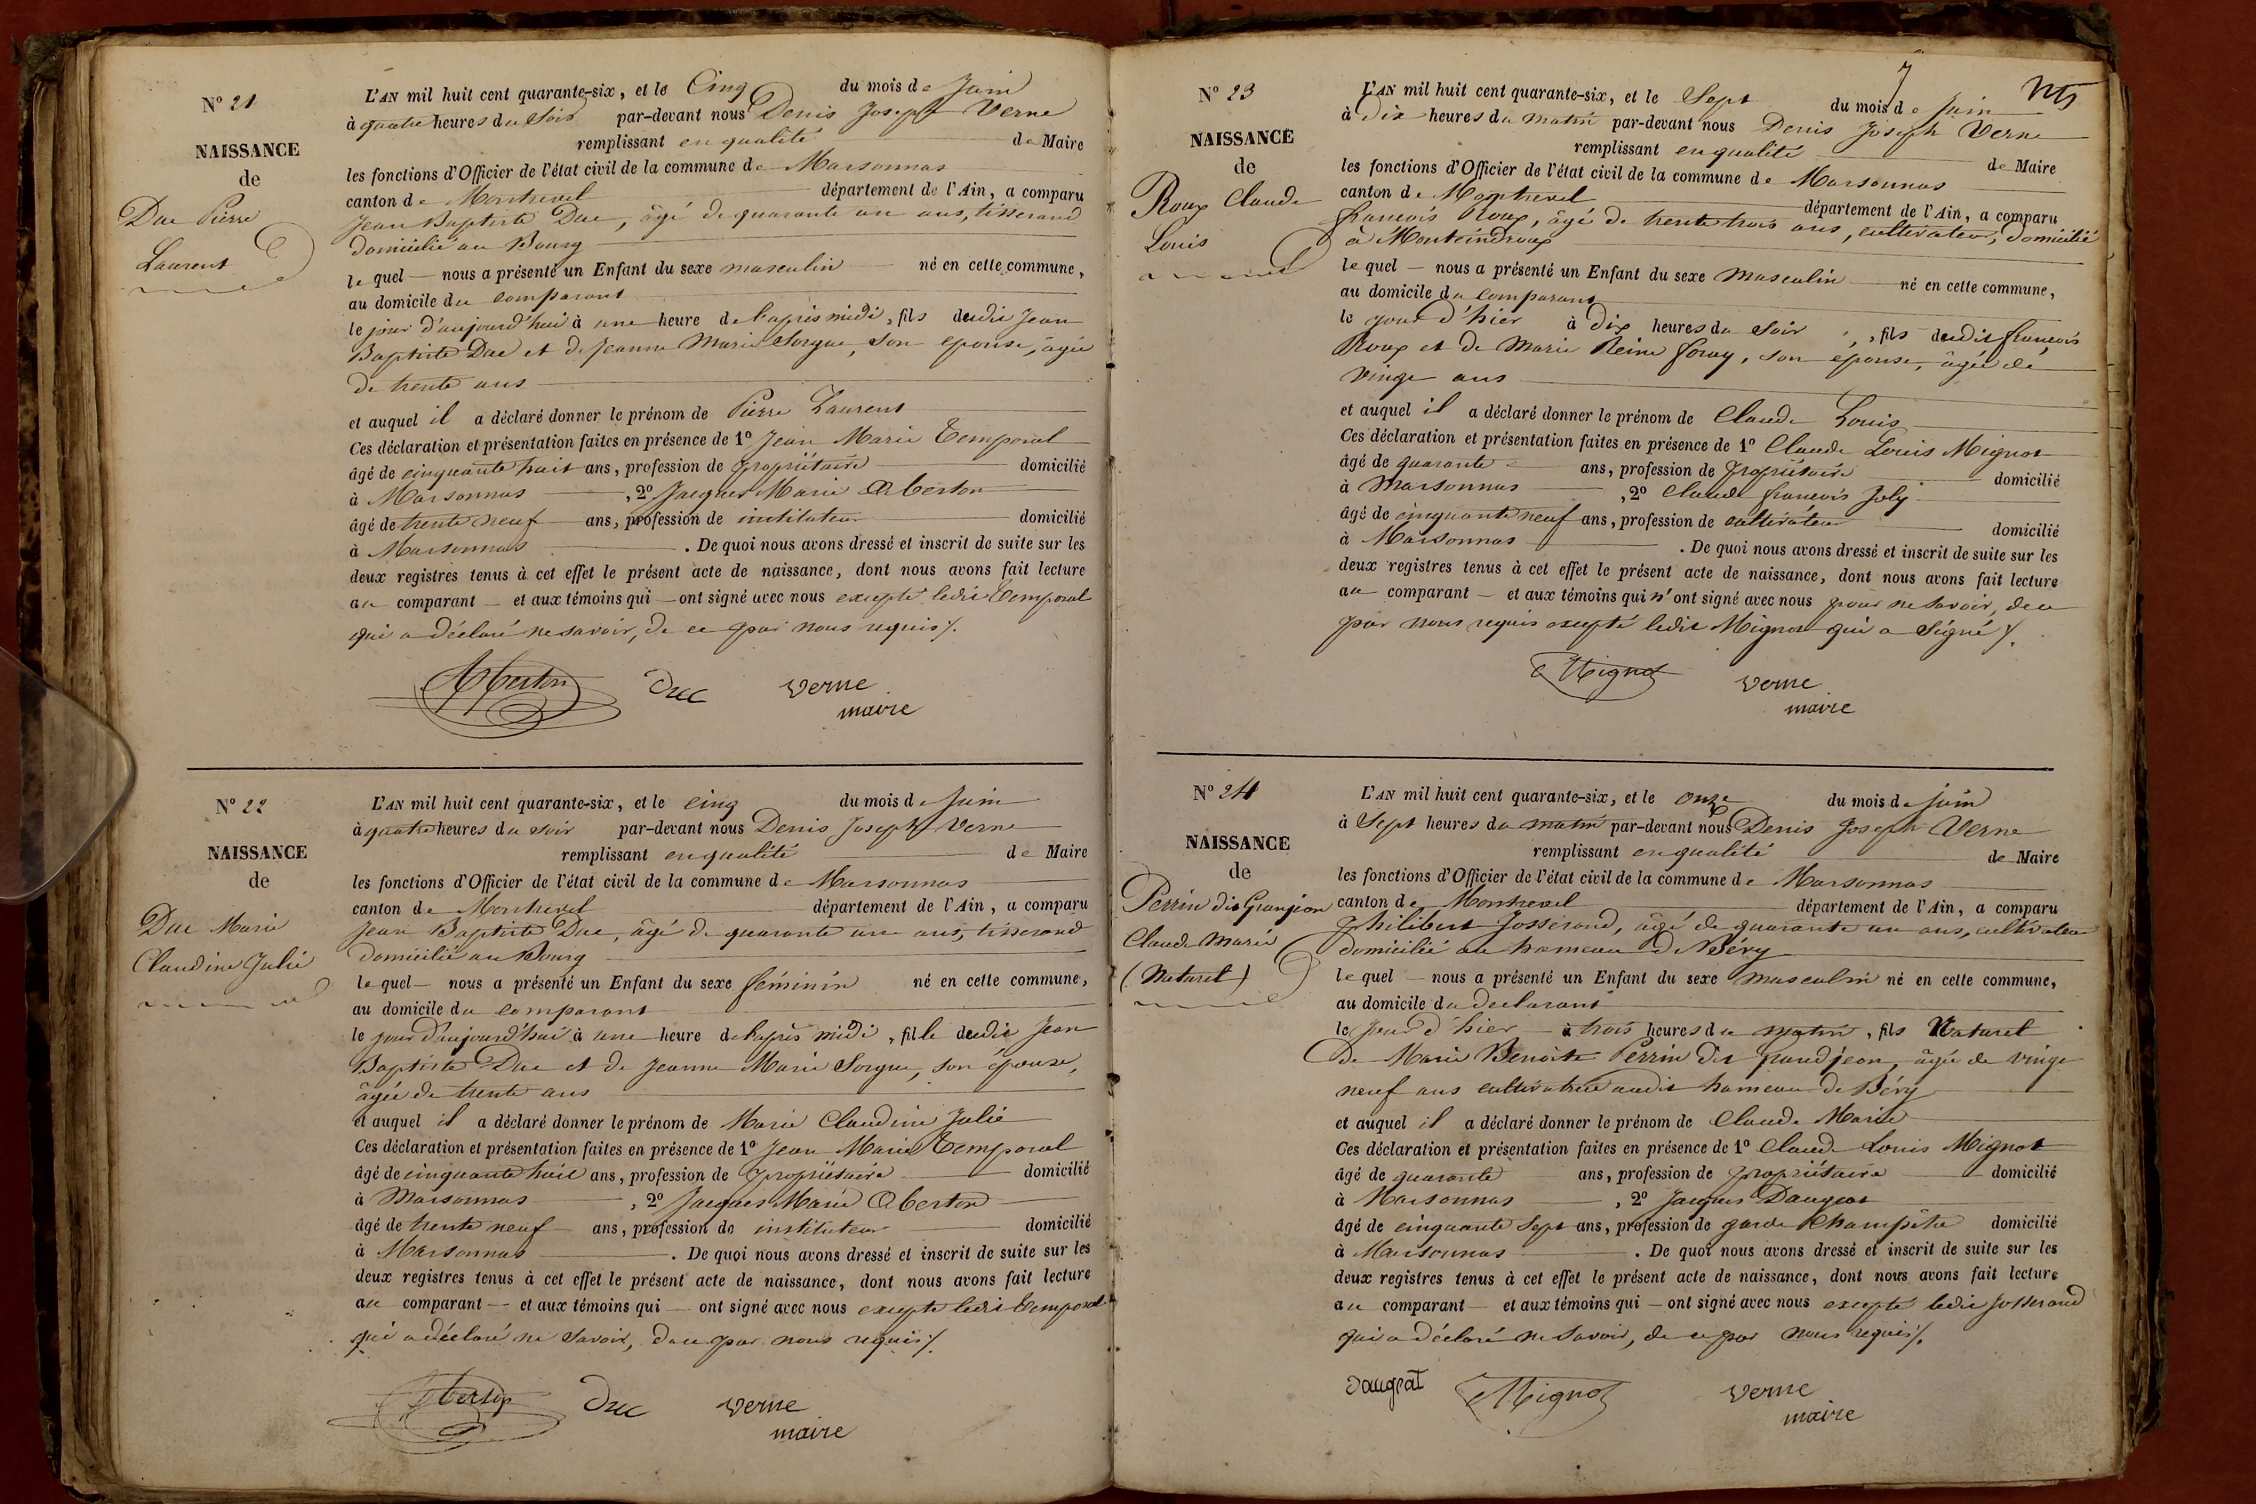 N° 21
NAISSANCE
de
Duc Pierre
Laurent
L'AN mil huit cent quarante-six, et le Cinq du mois de Juin
à quatre heures du Soir par-devant nous Denis Joseph Verne
remplissant en qualité de Maire
les fonctions d'Officier de l'état civil de la commune de Marsonnas
canton de Montrevel département de l'Ain, a comparu
Jean Baptiste Duc, âgé de quarante un ans, tisserand
domicilié au Bourg
le quel nous a présenté un Enfant du sexe masculin né en cette commune,
au domicile du comparant
le jour d'aujourd'hui à une heure de l'après midi, fils dudit Jean
Baptiste Duc et de Jeanne Marie Sorgue, son épouse, âgée
de trente ans
et auquel il a déclaré donner le prénom de Pierre Laurent
Ces déclaration et présentation faites en présence de 1° Jean Marie Temporal
âgé de cinquante huit ans, profession de propriétaire domicilié
à Marsonnas, 2° Jacques Marie Oberton
âgé de trente neuf ans, profession de instituteur domicilié
à Marsonnas. De quoi nous avons dressé et inscrit de suite sur les
deux registres tenus à cet effet le présent acte de naissance, dont nous avons fait lecture
au comparant et aux témoins qui ont signé avec nous excepté ledit Temporal
qui a déclaré ne savoir, de ce par nous requis ./.
Duc verne
maire
N° 22
NAISSANCE
de
Duc Marie
Claudine Julie
L'AN mil huit cent quarante-six, et le cinq du mois de Juin
à quatre heures du soir par-devant nous Denis Joseph Verne
remplissant en qualité de Maire
les fonctions d'Officier de l'état civil de la commune de Marsonnas
canton de Montrevel département de l'Ain, a comparu
Jean Baptiste Duc, âgé de quarante un ans, tisserand
domicilié au Bourg
le quel nous a présenté un Enfant du sexe féminin né en cette commune,
au domicile du comparant
le jour d'aujourd'hui à une heure de l'après midi, fille dudit Jean
Baptiste Duc et de Jeanne Marie Sorgue, son épouse,
âgée de trente ans
et auquel il a déclaré donner le prénom de Marie Claudine Julie
Ces déclaration et présentation faites en présence de 1° Jean Marie Temporal
âgé de cinquante huit ans, profession de propriétaire domicilié
à Marsonnas, 2° Jacques Marie Oberton
âgé de trente neuf ans, profession de instituteur domicilié
à Marsonnas. De quoi nous avons dressé et inscrit de suite sur les
deux registres tenus à cet effet le présent acte de naissance, dont nous avons fait lecture
au comparant et aux témoins qui ont signé avec nous excepté ledit Temporal
qui a déclaré ne savoir, de ce par nous requis ./.
Duc verne
maire
7
N° 23
NAISSANCE
de
Roux Claude
Louis
L'AN mil huit cent quarante-six, et le Sept du mois de Juin
à Dix heures du matin par-devant nous Denis Joseph Verne
remplissant en qualité de Maire
les fonctions d'Officier de l'état civil de la commune de Marsonnas
canton de Montrevel département de l'Ain, a comparu
françois Roux, âgé de trente trois ans, cultivateur, domicilié
à Montcindroux
le quel nous a présenté un Enfant du sexe masculin né en cette commune,
au domicile du comparant
le jour d'hier à dix heures du soir, fils dudit françois
Roux et de Marie Reine foray, son épouse, âgée de
vingt ans
et auquel il a déclaré donner le prénom de Claude Louis
Ces déclaration et présentation faites en présence de 1° Claude Louis Mignot
âgé de quarante ans, profession de propriétaire domicilié
à Marsonnas, 2° Claude françois Joly
âgé de cinquante neuf ans, profession de cultivateur domicilié
à Marsonnas. De quoi nous avons dressé et inscrit de suite sur les
deux registres tenus à cet effet le présent acte de naissance, dont nous avons fait lecture
au comparant et aux témoins qui n'ont signé avec nous pour ne savoir, de ce
par nous requis excepté ledit Mignot qui a Signé ./.
Mignot verne
maire
N° 24
NAISSANCE
de
Perrin dit Granjean
Claude Marie
(Naturel)
L'AN mil huit cent quarante-six, et le onze du mois de juin
à Sept heures du matin par-devant nous Denis Joseph Verne
remplissant en qualité de Maire
les fonctions d'Officier de l'état civil de la commune de Marsonnas
canton de Montrevel département de l'Ain, a comparu
Philibert Josserand, âgé de quarante un ans, cultivateur
domicilié au hameau de Béry
le quel nous a présenté un Enfant du sexe masculin né en cette commune,
au domicile du declarant
le jour d'hier à trois heures du matin, fils Naturel
de Marie Benoite Perrin dit grandjean, âgée de vingt
neuf ans cultivatrice audit hameau de Béry
et auquel il a déclaré donner le prénom de Claude Marie
Ces déclaration et présentation faites en présence de 1° Claude Louis Mignot
âgé de quarante ans, profession de propriétaire domicilié
à Marsonnas, 2° Jacques Daugeat
âgé de cinquante Sept ans, profession de garde champêtre domicilié
à Marsonnas. De quoi nous avons dressé et inscrit de suite sur les
deux registres tenus à cet effet le présent acte de naissance, dont nous avons fait lecture
au comparant et aux témoins qui ont signé avec nous excepté ledit Josserand
qui a déclaré ne savoir, de ce par nous requis ./.
Daugeat Mignot verne
maire